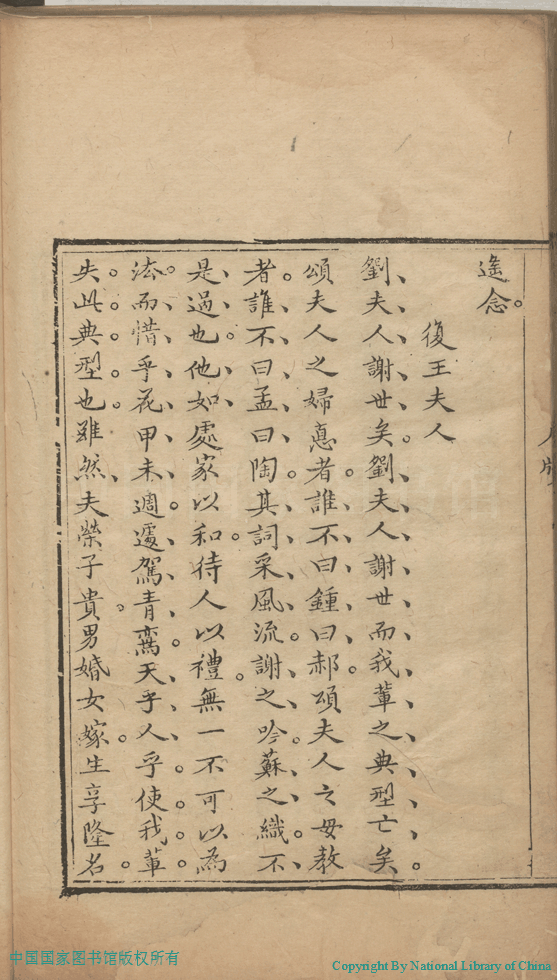 遙念。
復王夫人
劉夫人謝世矣。劉夫人謝世而我輩之典型亡矣。
頌夫人之婦惪者。誰不曰鍾曰郝。頌夫人之毋教
者。誰不曰孟曰陶。其詞采風流。謝之吟。蘇之織。不
是過也。他如處家以和。待人以禮。無一不可以為
法。而惜乎花甲未週。遽駕青鸞。天乎人乎。使我輩
失此典型也。雖然夫榮子貴。男婚女嫁。生享隆名。
中国国家图书馆版权所有
Copyright By National Library of China